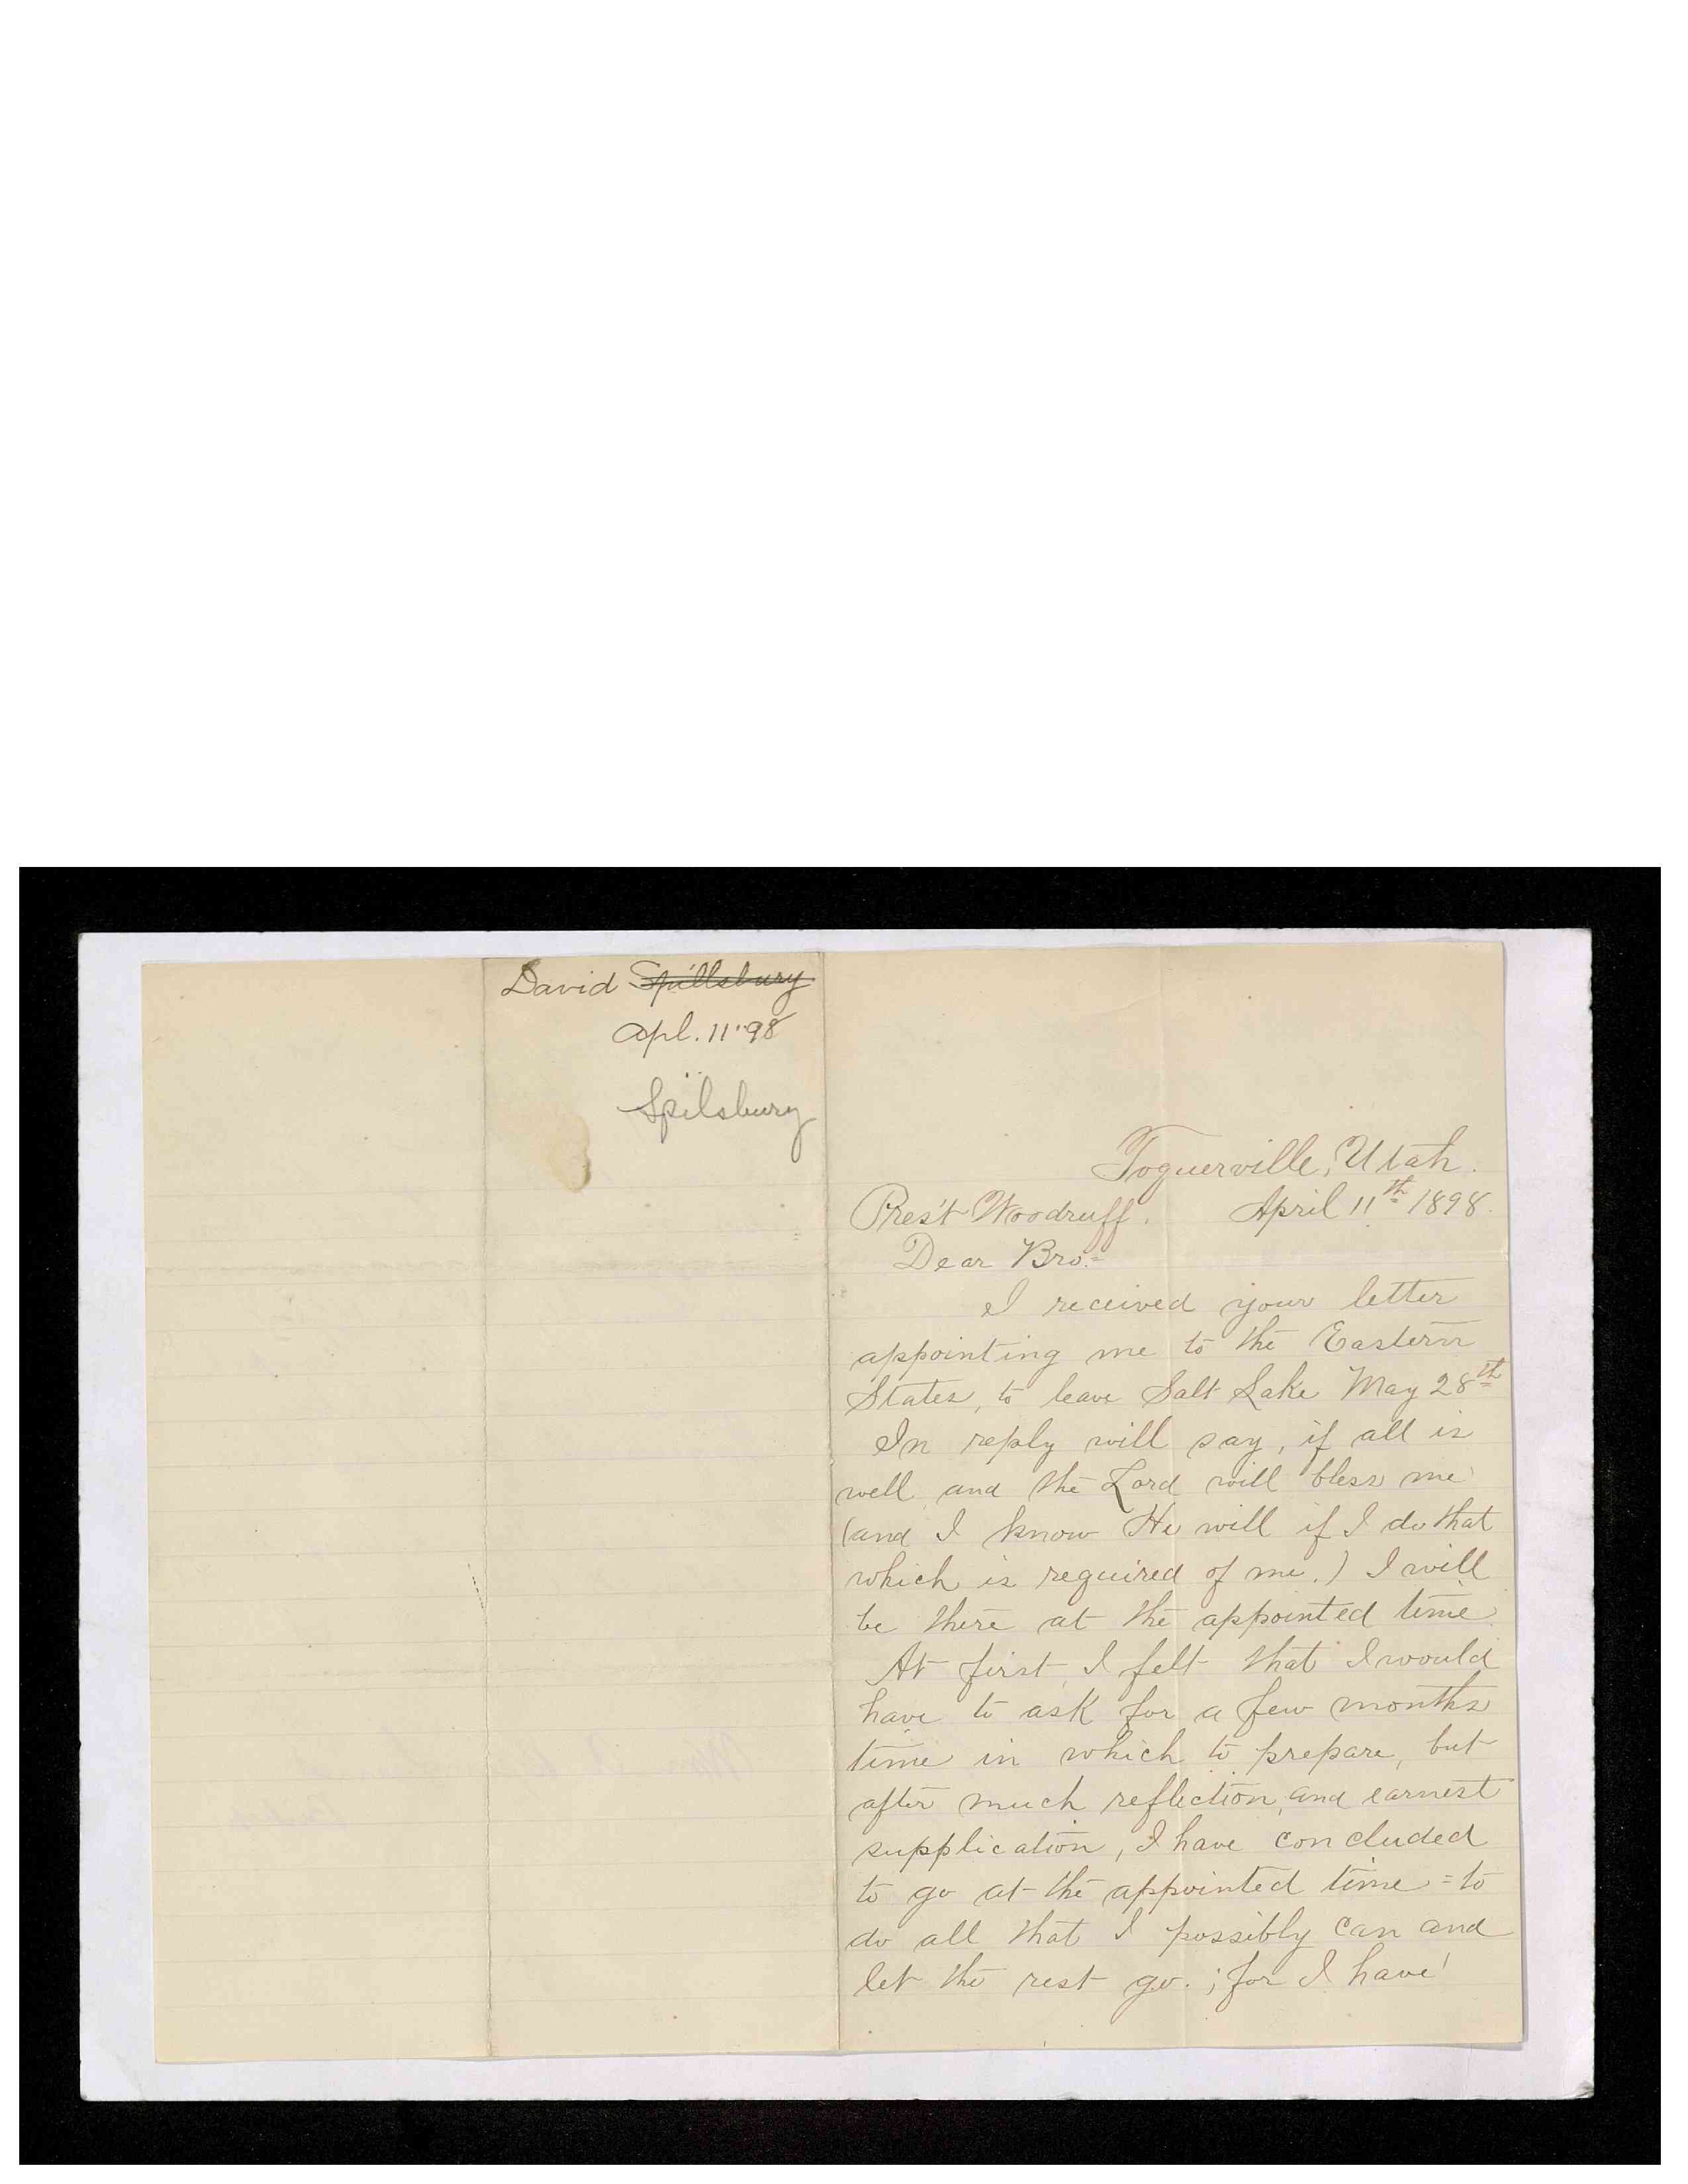 David Spillsbury
Apl. 11 "98
Spilsbury
Toquerville, Utah.
Pres't Woodruff. April 11th 1898.
Dear Bro:-
I received your letter
appointing me to the Eastern
States, to leave Salt Lake May 28th
In reply will say, if all is
well and the Lord will bless me
(and I know He will if I do that
which is required of me.) I will
be there at the appointed time.
At first I felt that I would
have to ask for a few months
time in which to prepare, but
after much reflection, and earnest
supplication, I have concluded
to go at the appointed time = to
do all that I possibly can and
let the rest go. ; for I have